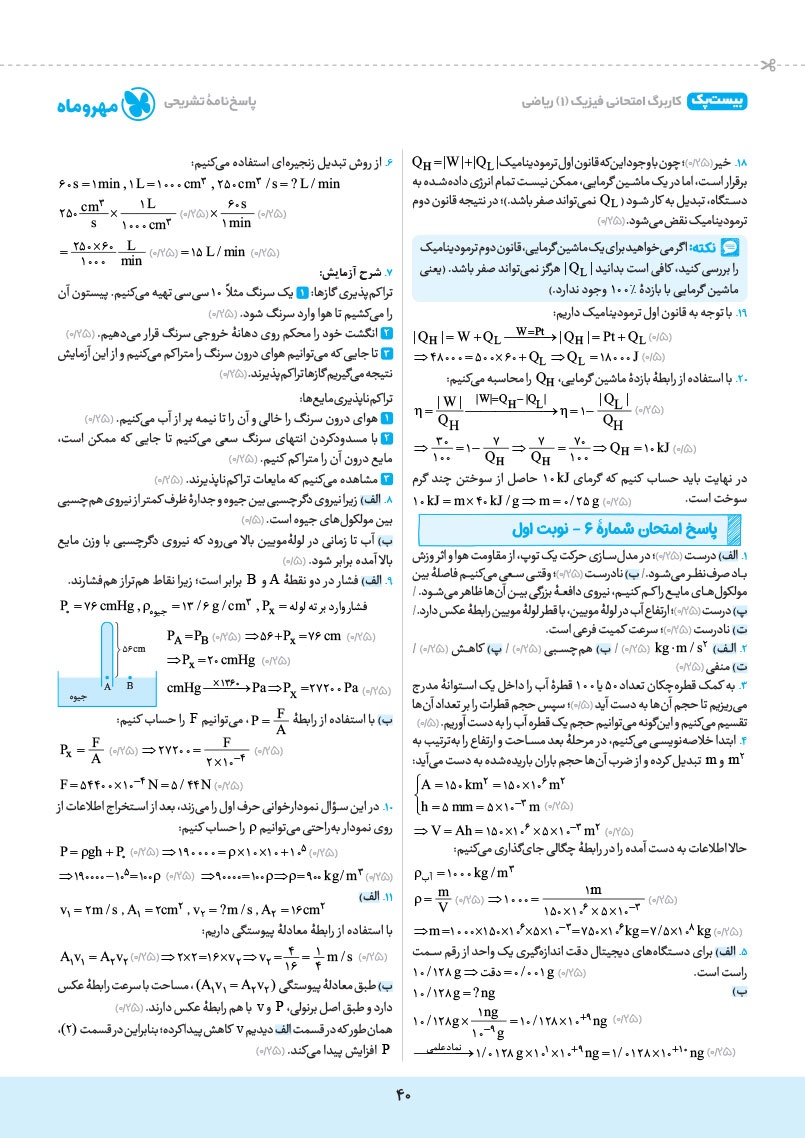 بیست‌پک کاربرگ امتحانی فیزیک (۱) ریاضی
پاسخ‌نامهٔ تشریحی مهروماه
۱۸. خیر (۰/۲۵)؛ چون با وجود این‌که قانون اول ترمودینامیک Q_H = |W| + |Q_L|
برقرار است، اما در یک ماشین گرمایی، ممکن نیست تمام انرژی داده‌شده به
دستگاه، تبدیل به کار شود ( Q_L نمی‌تواند صفر باشد.)؛ در نتیجه قانون دوم
ترمودینامیک نقض می‌شود. (۰/۲۵)
نکته: اگر می‌خواهید برای یک ماشین گرمایی، قانون دوم ترمودینامیک
را بررسی کنید، کافی است بدانید |Q_L| هرگز نمی‌تواند صفر باشد. (یعنی
ماشین گرمایی با بازدهٔ ۱۰۰٪ وجود ندارد.)
۱۹. با توجه به قانون اول ترمودینامیک داریم:
|Q_H| = W + Q_L —W=Pt→ |Q_H| = Pt + Q_L (۰/۵)
⇒ ۴۸۰۰۰ = ۵۰۰×۶۰ + Q_L ⇒ Q_L = ۱۸۰۰۰ J (۰/۵)
۲۰. با استفاده از رابطهٔ بازدهٔ ماشین گرمایی، Q_H را محاسبه می‌کنیم:
η = |W|/Q_H —|W|=Q_H−|Q_L|→ η = ۱ − |Q_L|/Q_H (۰/۲۵)
⇒ ۳۰/۱۰۰ = ۱ − ۷/Q_H ⇒ ۷/Q_H = ۷۰/۱۰۰ ⇒ Q_H = ۱۰ kJ (۰/۵)
در نهایت باید حساب کنیم که گرمای ۱۰ kJ حاصل از سوختن چند گرم
سوخت است. ۱۰ kJ = m × ۴۰ kJ/g ⇒ m = ۰/۲۵ g (۰/۲۵)
پاسخ امتحان شمارهٔ ۶ - نوبت اول
۱. الف) درست (۰/۲۵)؛ در مدل‌سازی حرکت یک توپ، از مقاومت هوا و اثر وزش
باد صرف‌نظر می‌شود. / ب) نادرست (۰/۲۵)؛ وقتی سعی می‌کنیم فاصلهٔ بین
مولکول‌های مایع را کم کنیم، نیروی دافعهٔ بزرگی بین آن‌ها ظاهر می‌شود. /
پ) درست (۰/۲۵)؛ ارتفاع آب در لولهٔ مویین، با قطر لولهٔ مویین رابطهٔ عکس دارد. /
ت) نادرست (۰/۲۵)؛ سرعت کمیت فرعی است.
۲. الف) kg·m/s² (۰/۲۵) / ب) هم‌چسبی (۰/۲۵) / پ) کاهش (۰/۲۵) /
ت) منفی (۰/۲۵)
۳. به کمک قطره‌چکان تعداد ۵۰ یا ۱۰۰ قطرهٔ آب را داخل یک استوانهٔ مدرج
می‌ریزیم تا حجم آن‌ها به دست آید (۰/۵)؛ سپس حجم قطرات را بر تعداد آن‌ها
تقسیم می‌کنیم و این‌گونه می‌توانیم حجم یک قطره آب را به دست آوریم. (۰/۵)
۴. ابتدا خلاصه‌نویسی می‌کنیم، در مرحلهٔ بعد مساحت و ارتفاع را به‌ترتیب به
m² و m تبدیل کرده و از ضرب آن‌ها حجم باران باریده‌شده به دست می‌آید:
A = ۱۵۰ km² = ۱۵۰×۱۰⁶ m²
h = ۵ mm = ۵×۱۰⁻³ m (۰/۲۵)
⇒ V = Ah = ۱۵۰×۱۰⁶×۵×۱۰⁻³ m² (۰/۲۵)
حالا اطلاعات به دست آمده را در رابطهٔ چگالی جای‌گذاری می‌کنیم:
ρ_آب = ۱۰۰۰ kg/m³
ρ = m/V (۰/۲۵) ⇒ ۱۰۰۰ = ۱m/(۱۵۰×۱۰⁶×۵×۱۰⁻³) (۰/۲۵)
⇒ m = ۱۰۰۰×۱۵۰×۱۰⁶×۵×۱۰⁻³ = ۷۵۰×۱۰⁶ kg = ۷/۵×۱۰⁸ kg (۰/۲۵)
۵. الف) برای دستگاه‌های دیجیتال دقت اندازه‌گیری یک واحد از رقم سمت
راست است. ۱۰/۱۲۸ g ⇒ دقت = ۰/۰۰۱ g (۰/۲۵)
ب) ۱۰/۱۲۸ g = ? ng
۱۰/۱۲۸ g × ۱ng/۱۰⁻⁹ g = ۱۰/۱۲۸×۱۰⁺⁹ ng (۰/۲۵)
—نماد علمی→ ۱/۰۱۲۸ g×۱۰¹×۱۰⁺⁹ ng = ۱/۰۱۲۸×۱۰⁺¹⁰ ng (۰/۲۵)
۶. از روش تبدیل زنجیره‌ای استفاده می‌کنیم:
۶۰s = ۱min , ۱L = ۱۰۰۰ cm³ , ۲۵۰ cm³/s = ? L/min
۲۵۰ cm³/s × ۱L/۱۰۰۰cm³ (۰/۲۵) × ۶۰s/۱min (۰/۲۵)
= ۲۵۰×۶۰/۱۰۰۰ L/min (۰/۲۵) = ۱۵ L/min (۰/۲۵)
۷. شرح آزمایش:
تراکم‌پذیری گازها: ۱ یک سرنگ مثلاً ۱۰ سی‌سی تهیه می‌کنیم. پیستون آن
را می‌کشیم تا هوا وارد سرنگ شود. (۰/۲۵)
۲ انگشت خود را محکم روی دهانهٔ خروجی سرنگ قرار می‌دهیم. (۰/۲۵)
۳ تا جایی که می‌توانیم هوای درون سرنگ را متراکم می‌کنیم و از این آزمایش
نتیجه می‌گیریم گازها تراکم‌پذیرند. (۰/۲۵)
تراکم‌ناپذیری مایع‌ها:
۱ هوای درون سرنگ را خالی و آن را تا نیمه پر از آب می‌کنیم. (۰/۲۵)
۲ با مسدودکردن انتهای سرنگ سعی می‌کنیم تا جایی که ممکن است،
مایع درون آن را متراکم کنیم. (۰/۲۵)
۳ مشاهده می‌کنیم که مایعات تراکم‌ناپذیرند. (۰/۲۵)
۸. الف) زیرا نیروی دگرچسبی بین جیوه و جدارهٔ ظرف کمتر از نیروی هم‌چسبی
بین مولکول‌های جیوه است. (۰/۵)
ب) آب تا زمانی در لوله‌مویین بالا می‌رود که نیروی دگرچسبی با وزن مایع
بالا آمده برابر شود. (۰/۵)
۹. الف) فشار در دو نقطهٔ A و B برابر است؛ زیرا نقاط هم‌تراز هم‌فشارند.
P₀ = ۷۶ cmHg , ρ_جیوه = ۱۳/۶ g/cm³ , P_x = فشار وارد بر ته لوله
P_A = P_B (۰/۲۵) ⇒ ۵۶ + P_x = ۷۶ cm (۰/۲۵)
⇒ P_x = ۲۰ cmHg (۰/۲۵)
cmHg —×۱۳۶۰→ Pa ⇒ P_x = ۲۷۲۰۰ Pa (۰/۲۵)
۵۶cm
A B
جیوه
ب) با استفاده از رابطهٔ P = F/A ، می‌توانیم F را حساب کنیم:
P_x = F/A (۰/۲۵) ⇒ ۲۷۲۰۰ = F/(۲×۱۰⁻⁴) (۰/۲۵)
F = ۵۴۴۰۰×۱۰⁻⁴ N = ۵/۴۴ N (۰/۲۵)
۱۰. در این سؤال نمودارخوانی حرف اول را می‌زند، بعد از استخراج اطلاعات از
روی نمودار به‌راحتی می‌توانیم ρ را حساب کنیم:
P = ρgh + P₀ (۰/۲۵) ⇒ ۱۹۰۰۰۰ = ρ×۱۰×۱۰ + ۱۰⁵ (۰/۲۵)
⇒ ۱۹۰۰۰۰ − ۱۰⁵ = ۱۰۰ρ (۰/۲۵) ⇒ ۹۰۰۰۰ = ۱۰۰ρ ⇒ ρ = ۹۰۰ kg/m³ (۰/۲۵)
۱۱. الف)
v₁ = ۲m/s , A₁ = ۲cm² , v₂ = ?m/s , A₂ = ۱۶cm²
با استفاده از رابطهٔ معادلهٔ پیوستگی داریم:
A₁v₁ = A₂v₂ (۰/۲۵) ⇒ ۲×۲ = ۱۶×v₂ ⇒ v₂ = ۴/۱۶ = ۱/۴ m/s (۰/۲۵)
ب) طبق معادلهٔ پیوستگی (A₁v₁ = A₂v₂)، مساحت با سرعت رابطهٔ عکس
دارد و طبق اصل برنولی، P و v با هم رابطهٔ عکس دارند. (۰/۲۵)
همان‌طور که در قسمت الف دیدیم v کاهش پیدا کرده؛ بنابراین در قسمت (۲)،
P افزایش پیدا می‌کند. (۰/۲۵)
۴۰